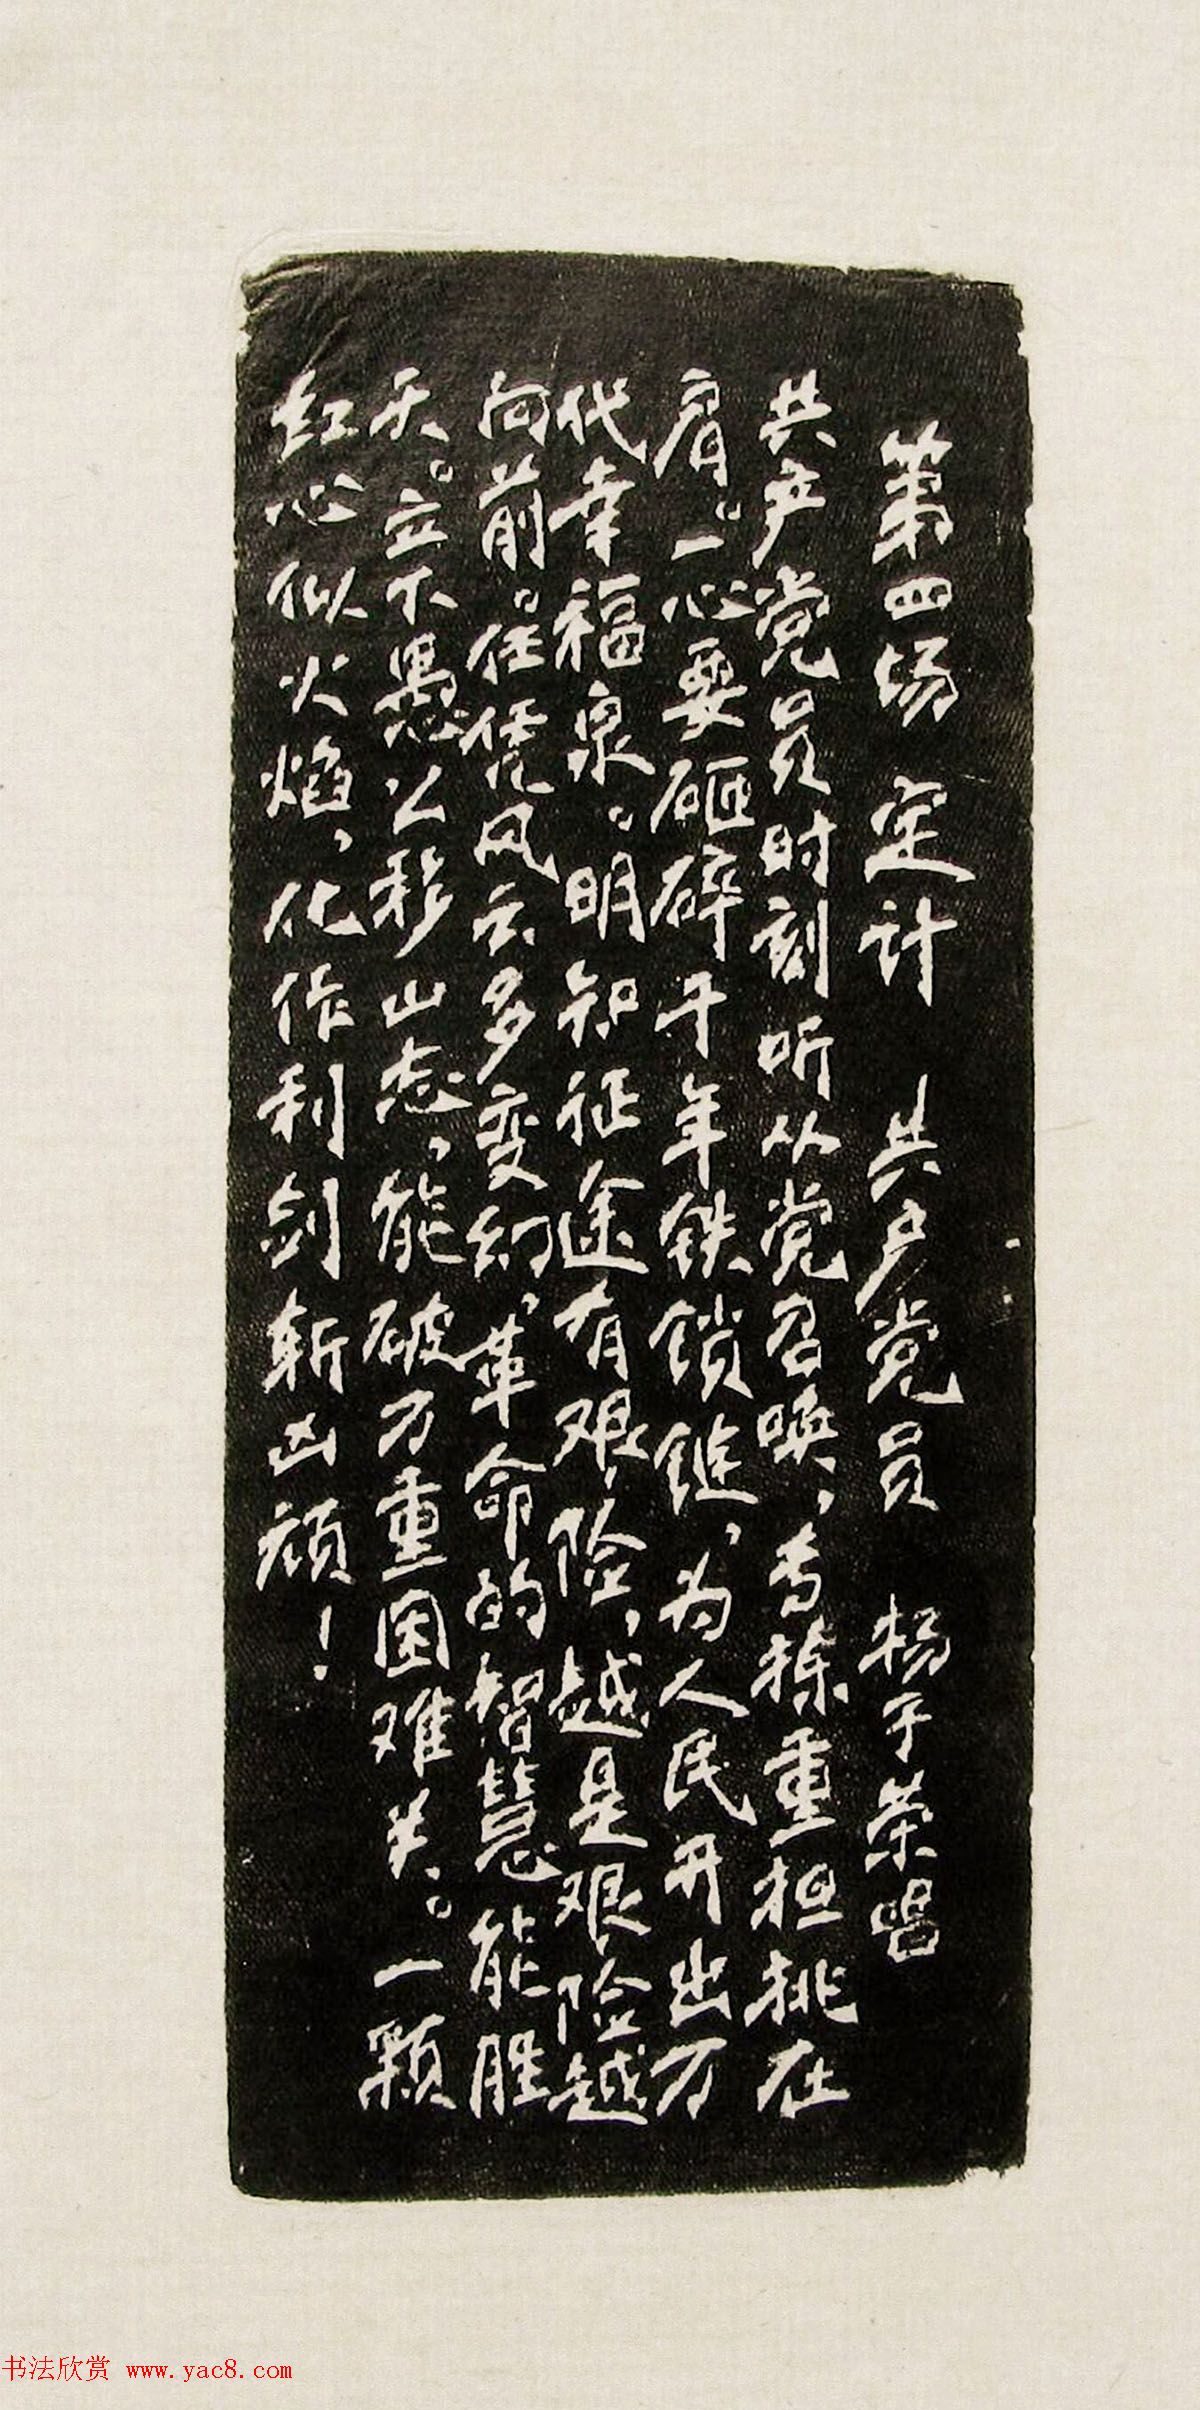 第四场 定计 共产党员 杨子荣唱
共产党员时刻听从党召唤，专拣重担挑在
肩。一心要砸碎千年铁锁链，为人民开出万
代幸福泉。明知征途有艰险，越是艰险越
向前。任凭风云多变幻，革命的智慧能胜
天。立下愚公移山志，能破万重困难关。一颗
红心似火焰，化作利剑斩凶顽！
书法欣赏 www.yac8.com